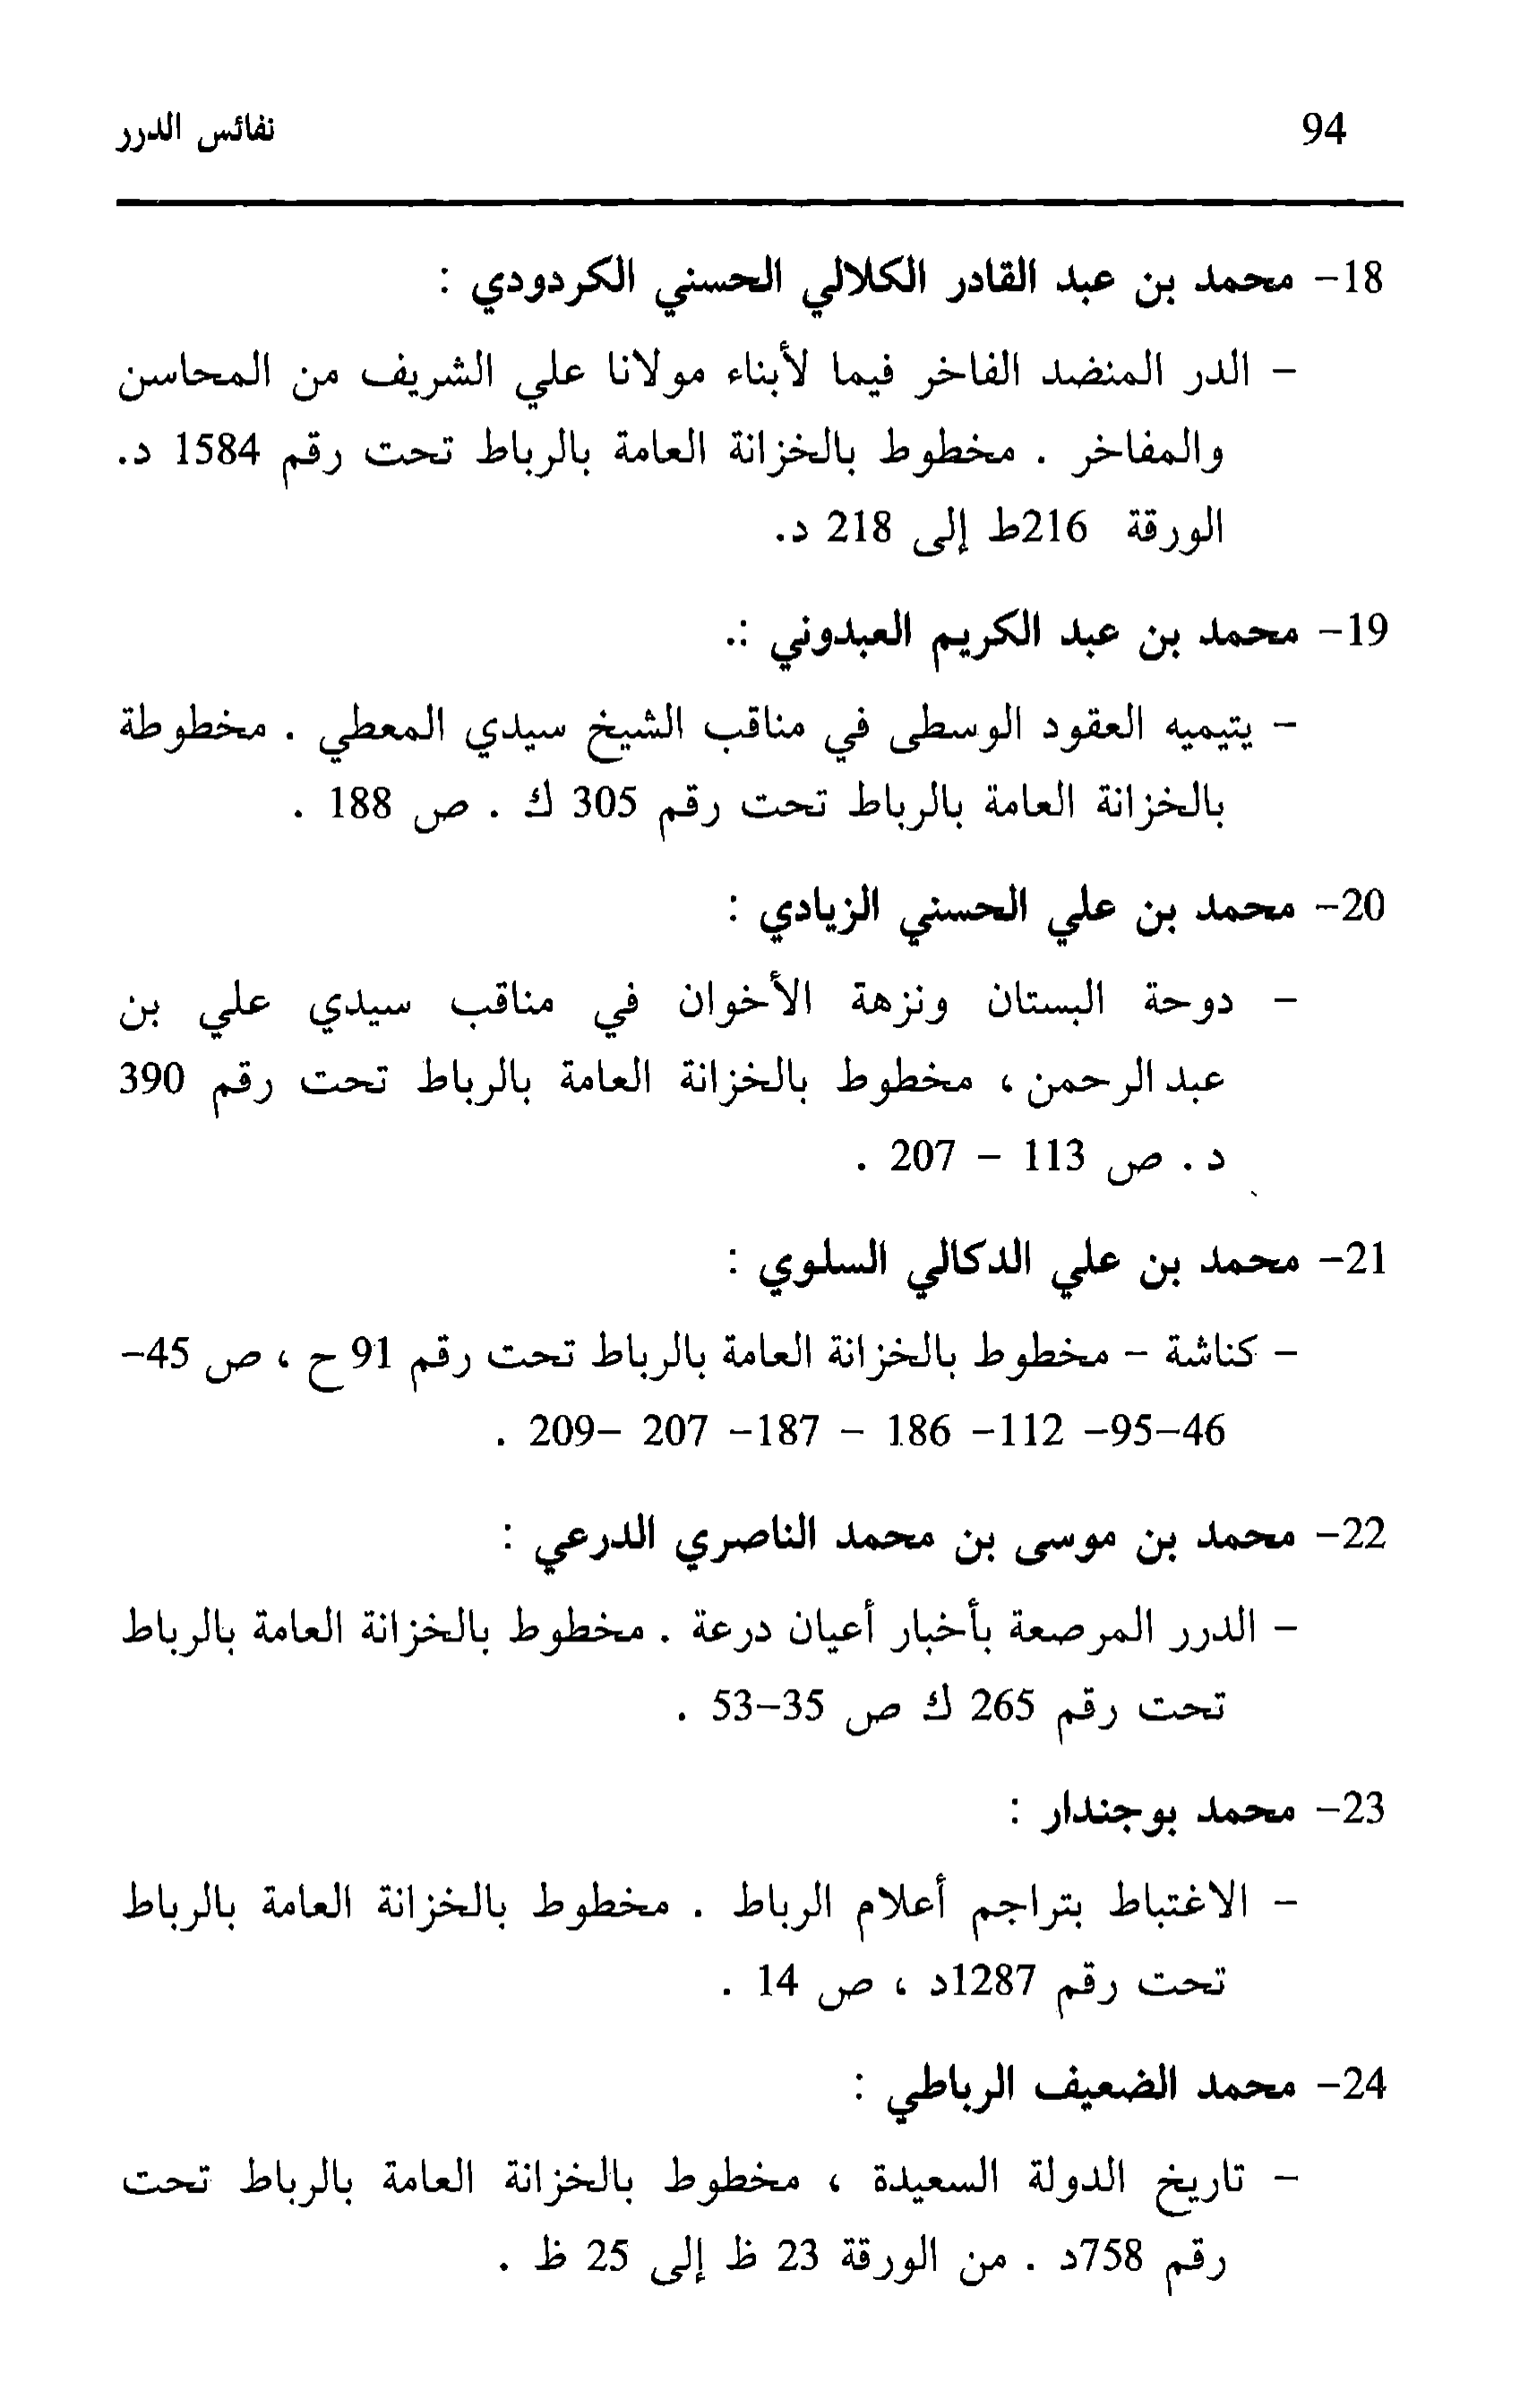 94
نفائس الدرر
18- محمد بن عبد القادر الكلالي الحسني الكردودي :
- الدر المنضد الفاخر فيما لأبناء مولانا علي الشريف من المحاسن
والمفاخر . مخطوط بالخزانة العامة بالرباط تحت رقم 1584 د.
الورقة 216ط إلى 218 د.
19- محمد بن عبد الكريم العبدوني :.
- يتيميه العقود الوسطى في مناقب الشيخ سيدي المعطي . مخطوطة
بالخزانة العامة بالرباط تحت رقم 305 ك . ص 188 .
20- محمد بن علي الحسني الزيادي :
- دوحة البستان ونزهة الأخوان في مناقب سيدي علي بن
عبد الرحمن ، مخطوط بالخزانة العامة بالرباط تحت رقم 390
د . ص 113 - 207 .
21- محمد بن علي الدكالي السلوي :
- كناشة - مخطوط بالخزانة العامة بالرباط تحت رقم 91 ح ، ص 45-
46-95- 112- 186 - 187- 207 -209 .
22- محمد بن موسى بن محمد الناصري الدرعي :
- الدرر المرصعة بأخبار أعيان درعة . مخطوط بالخزانة العامة بالرباط
تحت رقم 265 ك ص 35-53 .
23- محمد بوجندار :
- الاغتباط بتراجم أعلام الرباط . مخطوط بالخزانة العامة بالرباط
تحت رقم 1287د ، ص 14 .
24- محمد الضعيف الرباطي :
- تاريخ الدولة السعيدة ، مخطوط بالخزانة العامة بالرباط تحت
رقم 758د . من الورقة 23 ظ إلى 25 ظ .